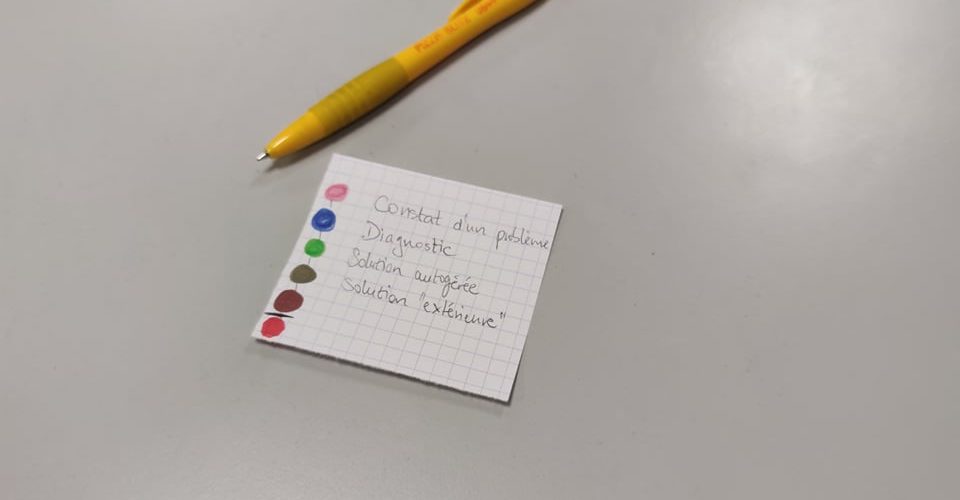 Constat d'un problème
Diagnostic
Solution autogérée
Solution "extérieure"